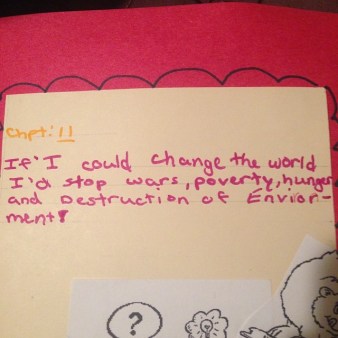 Chpt: 11
If I could change the world
I'd stop wars, poverty, hunger
and Destruction of Envior-
ment!
?